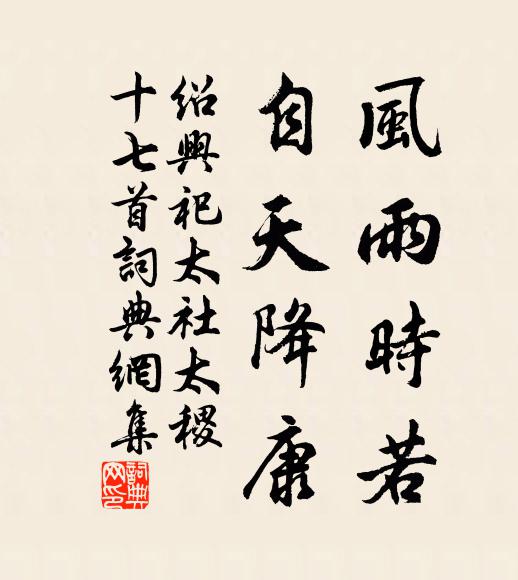 風雨時若
自天降康
紹興祀太社太稷
十七首詞典網集
詞典网印